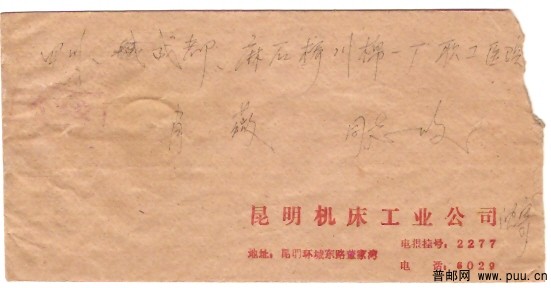 四川、成都、麻石桥川棉一厂职工医院
薇 同志收
昆明机床工业公司
电报挂号:2277
地址:昆明环城东路董家湾
电 话:6029
普邮网 www.puu.cn